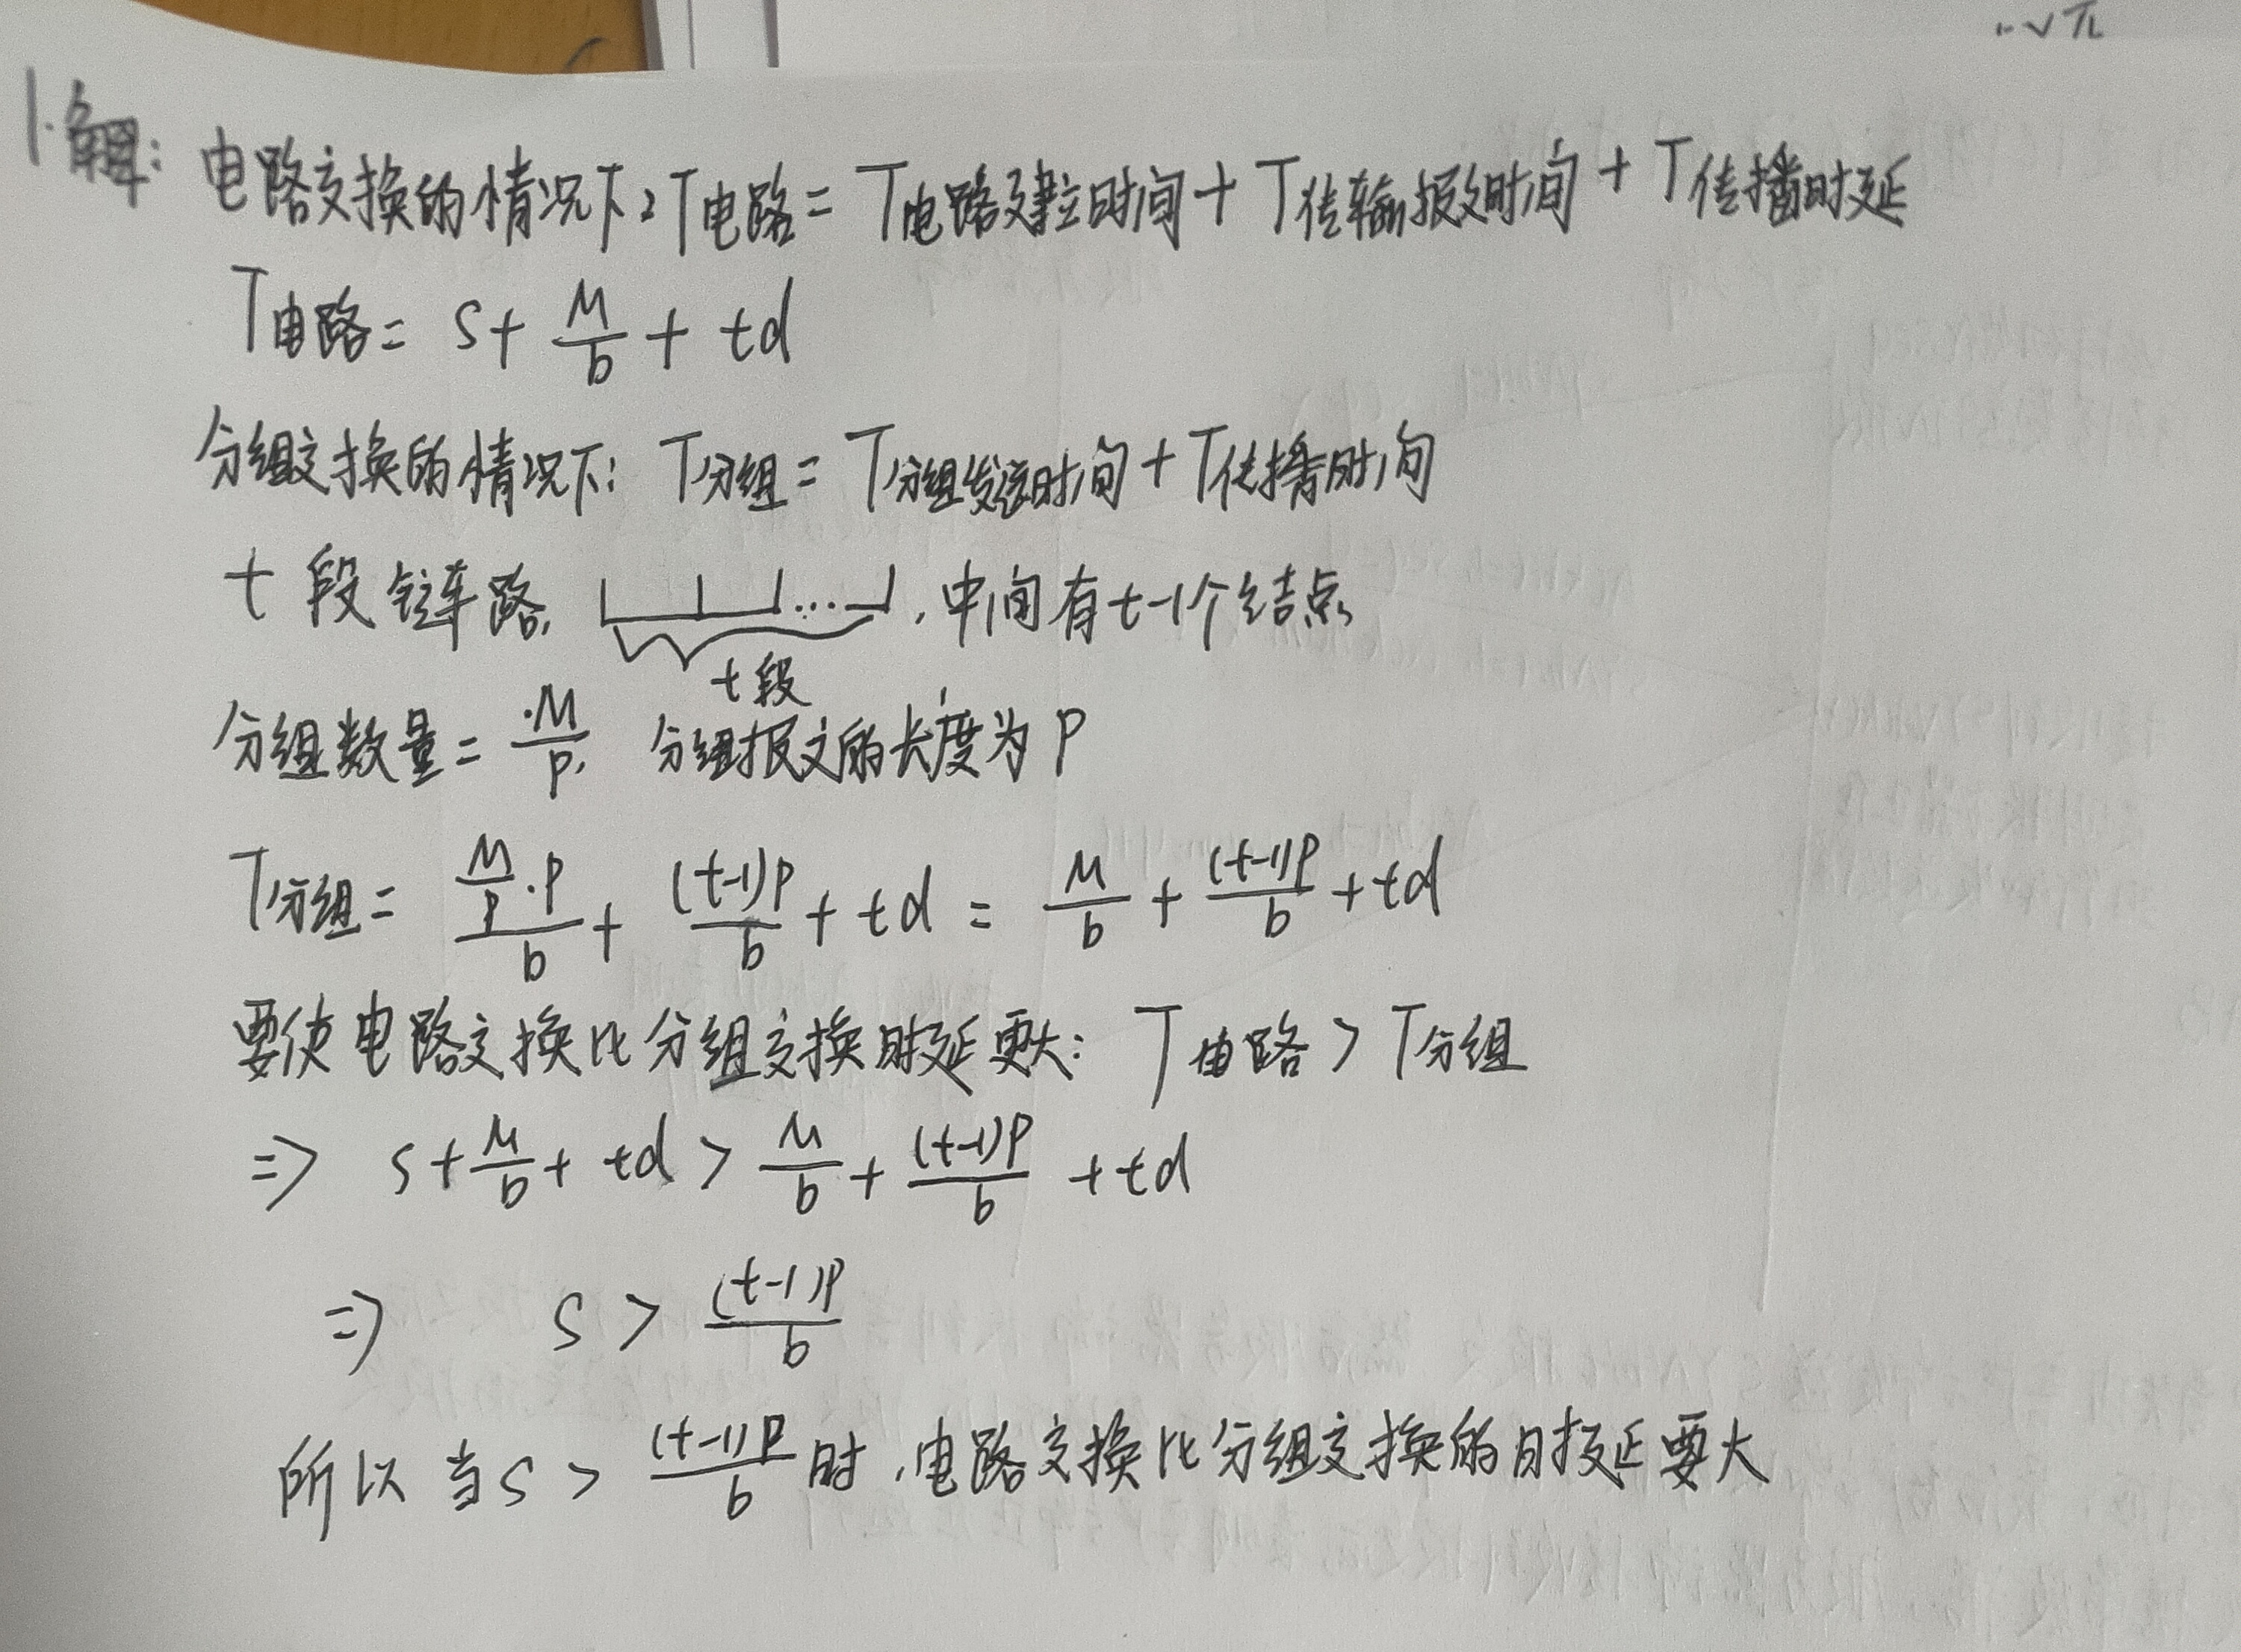 1.解: 电路交换的情况下: T电路 = T电路建立时间 + T传输报文时间 + T传播时延
T电路 = S + M/b + td
分组交换的情况下: T分组 = T分组发送时间 + T传播时间
t 段链路, ... , 中间有 t-1个结点
t段
分组数量 = M/P, 分组报文的长度为 P
T分组 = (M/P · P)/b + (t-1)P/b + td = M/b + (t-1)P/b + td
要使电路交换比分组交换时延更大: T电路 > T分组
=> S + M/b + td > M/b + (t-1)P/b + td
=> S > (t-1)P/b
所以当 S > (t-1)P/b 时, 电路交换比分组交换的时延要大